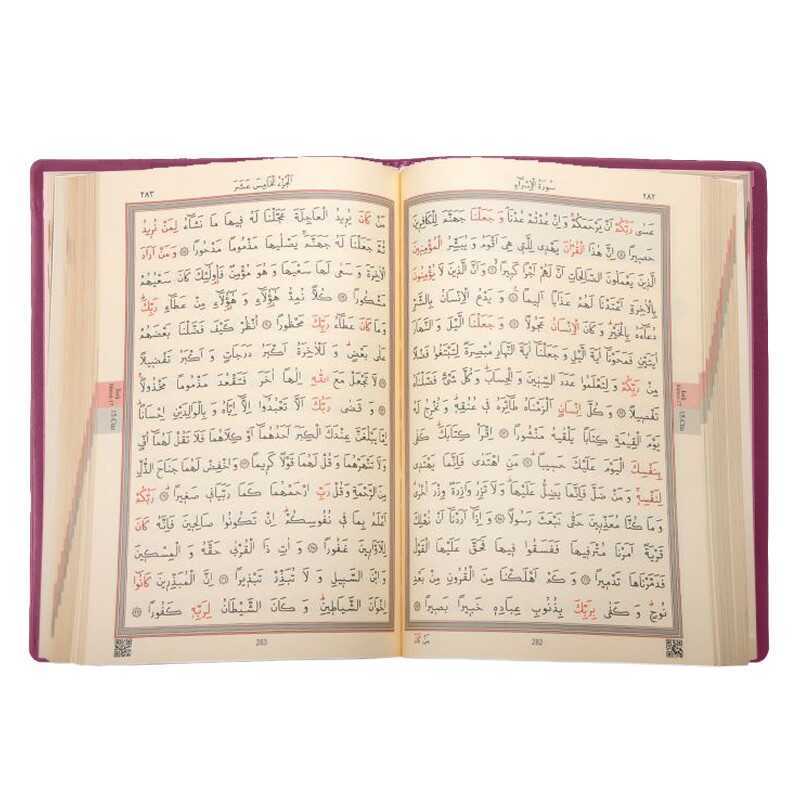 سُورَةُ الْاِسْرَاءِ
٢٨٢
عَسٰى رَبُّكُمْ اَنْ يَرْحَمَكُمْ وَاِنْ عُدْتُمْ عُدْنَا وَجَعَلْنَا جَهَنَّمَ لِلْكَافِرِينَ
حَصِيرًا ۝ اِنَّ هٰذَا الْقُرْاٰنَ يَهْدِى لِلَّتِى هِىَ اَقْوَمُ وَيُبَشِّرُ الْمُؤْمِنِينَ
الَّذِينَ يَعْمَلُونَ الصَّالِحَاتِ اَنَّ لَهُمْ اَجْرًا كَبِيرًا ۝ وَاَنَّ الَّذِينَ لَا يُؤْمِنُونَ
بِالْاٰخِرَةِ اَعْتَدْنَا لَهُمْ عَذَابًا اَلِيمًا ۝ وَيَدْعُ الْاِنْسَانُ بِالشَّرِّ
دُعَاءَهُ بِالْخَيْرِ وَكَانَ الْاِنْسَانُ عَجُولًا ۝ وَجَعَلْنَا الَّيْلَ وَالنَّهَارَ
اٰيَتَيْنِ فَمَحَوْنَا اٰيَةَ الَّيْلِ وَجَعَلْنَا اٰيَةَ النَّهَارِ مُبْصِرَةً لِتَبْتَغُوا فَضْلًا
مِنْ رَبِّكُمْ وَلِتَعْلَمُوا عَدَدَ السِّنِينَ وَالْحِسَابَ وَكُلَّ شَىْءٍ فَصَّلْنَاهُ
تَفْصِيلًا ۝ وَكُلَّ اِنْسَانٍ اَلْزَمْنَاهُ طَائِرَهُ فِى عُنُقِهِ وَنُخْرِجُ لَهُ
يَوْمَ الْقِيٰمَةِ كِتَابًا يَلْقٰيهُ مَنْشُورًا ۝ اِقْرَأْ كِتَابَكَ كَفٰى
بِنَفْسِكَ الْيَوْمَ عَلَيْكَ حَسِيبًا ۝ مَنِ اهْتَدٰى فَاِنَّمَا يَهْتَدِى
لِنَفْسِهِ وَمَنْ ضَلَّ فَاِنَّمَا يَضِلُّ عَلَيْهَا وَلَا تَزِرُ وَازِرَةٌ وِزْرَ اُخْرٰى
وَمَا كُنَّا مُعَذِّبِينَ حَتّٰى نَبْعَثَ رَسُولًا ۝ وَاِذَا اَرَدْنَا اَنْ نُهْلِكَ
قَرْيَةً اَمَرْنَا مُتْرَفِيهَا فَفَسَقُوا فِيهَا فَحَقَّ عَلَيْهَا الْقَوْلُ
فَدَمَّرْنَاهَا تَدْمِيرًا ۝ وَكَمْ اَهْلَكْنَا مِنَ الْقُرُونِ مِنْ بَعْدِ
نُوحٍ وَكَفٰى بِرَبِّكَ بِذُنُوبِ عِبَادِهِ خَبِيرًا بَصِيرًا ۝
مَنْ كَانَ
282
15.Cüz
٢٨٣
اَلْجُزْءُ الْخَامِسَ عَشَرَ
مَنْ كَانَ يُرِيدُ الْعَاجِلَةَ عَجَّلْنَا لَهُ فِيهَا مَا نَشَاءُ لِمَنْ نُرِيدُ
ثُمَّ جَعَلْنَا لَهُ جَهَنَّمَ يَصْلٰيهَا مَذْمُومًا مَدْحُورًا ۝ وَمَنْ اَرَادَ
الْاٰخِرَةَ وَسَعٰى لَهَا سَعْيَهَا وَهُوَ مُؤْمِنٌ فَاُولٰئِكَ كَانَ سَعْيُهُمْ
مَشْكُورًا ۝ كُلًّا نُمِدُّ هٰؤُلَاءِ وَهٰؤُلَاءِ مِنْ عَطَاءِ رَبِّكَ
وَمَا كَانَ عَطَاءُ رَبِّكَ مَحْظُورًا ۝ اُنْظُرْ كَيْفَ فَضَّلْنَا بَعْضَهُمْ
عَلٰى بَعْضٍ وَلَلْاٰخِرَةُ اَكْبَرُ دَرَجَاتٍ وَاَكْبَرُ تَفْضِيلًا
۝ لَا تَجْعَلْ مَعَ اللّٰهِ اِلٰهًا اٰخَرَ فَتَقْعُدَ مَذْمُومًا مَخْذُولًا
۝ وَقَضٰى رَبُّكَ اَلَّا تَعْبُدُوا اِلَّا اِيَّاهُ وَبِالْوَالِدَيْنِ اِحْسَانًا
اِمَّا يَبْلُغَنَّ عِنْدَكَ الْكِبَرَ اَحَدُهُمَا اَوْ كِلَاهُمَا فَلَا تَقُلْ لَهُمَا اُفٍّ
وَلَا تَنْهَرْهُمَا وَقُلْ لَهُمَا قَوْلًا كَرِيمًا ۝ وَاخْفِضْ لَهُمَا جَنَاحَ الذُّلِّ
مِنَ الرَّحْمَةِ وَقُلْ رَبِّ ارْحَمْهُمَا كَمَا رَبَّيَانِى صَغِيرًا ۝ رَبُّكُمْ
اَعْلَمُ بِمَا فِى نُفُوسِكُمْ اِنْ تَكُونُوا صَالِحِينَ فَاِنَّهُ كَانَ
لِلْاَوَّابِينَ غَفُورًا ۝ وَاٰتِ ذَا الْقُرْبٰى حَقَّهُ وَالْمِسْكِينَ
وَابْنَ السَّبِيلِ وَلَا تُبَذِّرْ تَبْذِيرًا ۝ اِنَّ الْمُبَذِّرِينَ كَانُوا
اِخْوَانَ الشَّيَاطِينِ وَكَانَ الشَّيْطَانُ لِرَبِّهِ كَفُورًا ۝
283
15.Cüz